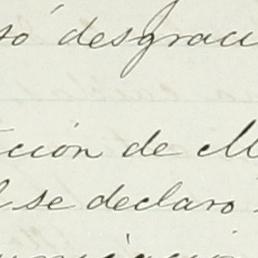 so desgraci
ción de M
l se declaro